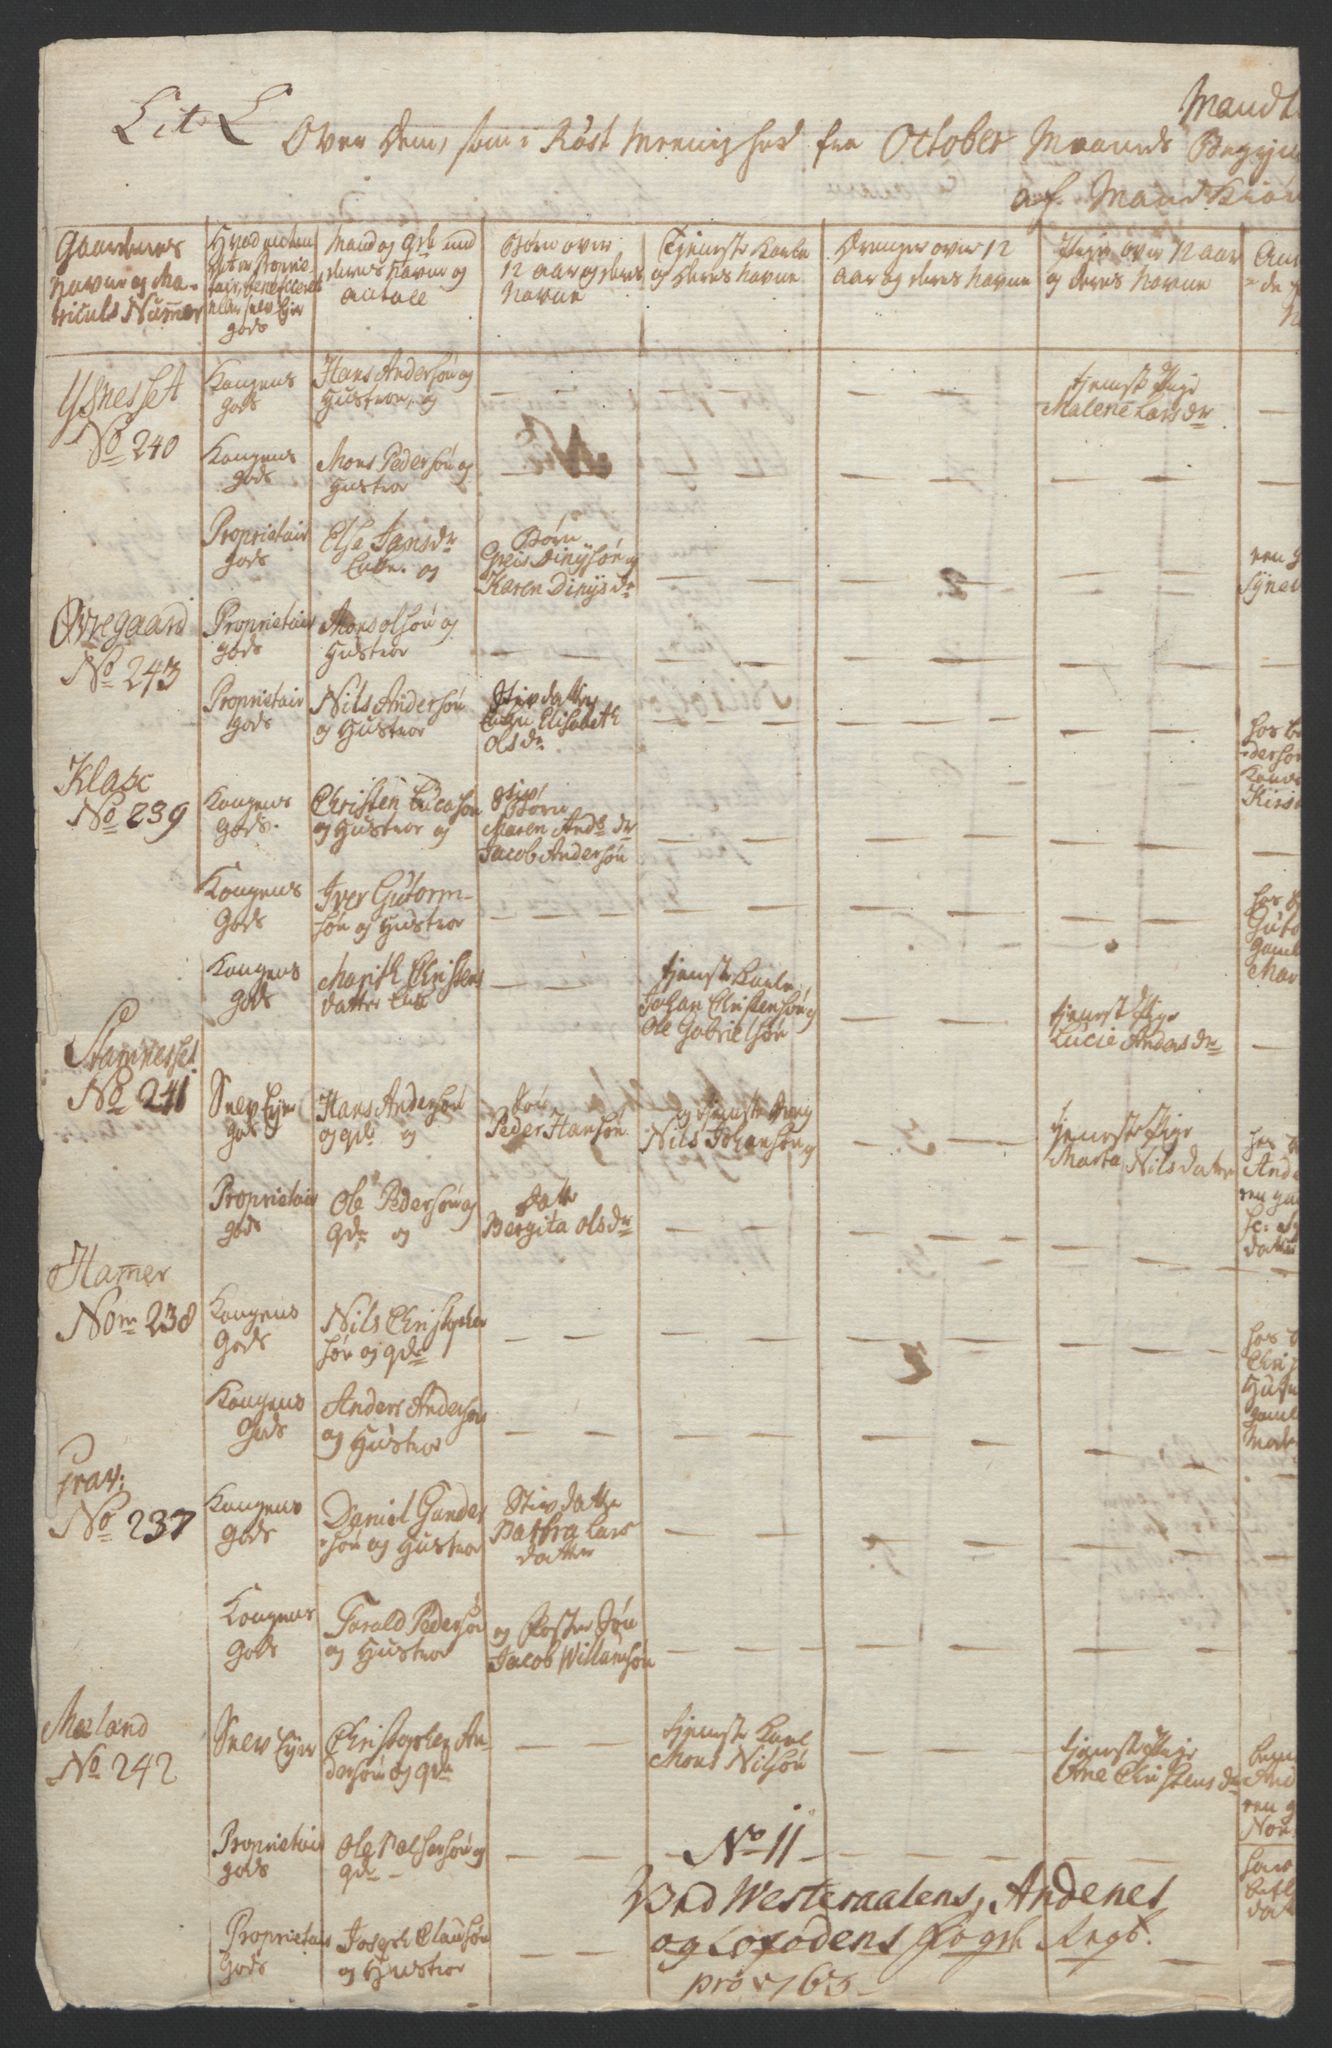 Mandt
Lit. L
Over Dem, som i Röst Meenighed fra October Maaneds Begyn
af Mandkiön
Gaardenes
Navne og Ma-
triculs Numer
Hvad enten
det er Proprie-
tair, beneficeret
eller selv Ejer
gods
Mand og qde med
deres Navne og
antall
Börn over
12 aar og deres
Navne
Tjeneste Karle
og deres Navne
Drenger over 12
aar og deres Navne
Piger over 12 aar
og deres Navne
Ysnesset
No 240
Kongens
gods
Hans Andersön og
Hustroe, og
tjenste Pige
Malene Larsdr
Kongens
gods
Mons Pedersön og
Hustroe
Proprietair
gods
Else Jansdr
Enke. og
Börn
Greis Dinysön og
Karen Dinysdr
2.
ren
Synev
Øvregaard
No 243
Proprietair
gods
Mons olsön og
Hustroe
Proprietair
gods
Nils Andersön
og Hustroe
Stivdatter
Elisabeth
Olsdr
Klake
No 239
Kongens
Gods.
Christen Lucasön
og Hustroe og
Stiv
Börn
Maren Andsdr
Jacob Andersön
Kongens
Gods
Iver Gutorm-
sön og Hustroe
Guto
Kongens
Gods
Marith Christens
datter Enke
tjenste Karle,
Johan Christensön og
Ole Gabrielsön
tjenste Pige
Lucie Andersdr
Mar
Stamnesset
No 241
Selv Ejer
gods
Hans Andersön
og qde og
Sön
Peder Hansön
og tjenste Dreng
Nils Johansön og
tjeneste Pige
Marta Nilsdatter
Ande
Proprietair
gods
Ole Pedersön og
qde og
Datter
Bergita olsdr
datter
Hamer
Nom 238
Kongens
Gods
Nils Christopher
sön og qde
Kongens
Gods
Anders Andersön
og Hustroe
Grav:
No 237
Kongens
Gods
Daniel Gunder
sön og Hustroe
Stivdatter
Bathra Lars
datter
Kongens
Gods
Torald Pedersön
og Hustroe
og Foster Sön
Jacob Willumsön
Merland
No 242
Selv Ejer
Christopher An-
dersön og qde
tjenste Karl
Mons Nilsön
tjenste Pige
Ane Christensdr
Proprietair
gods
Ole Pedersön og
qde
Proprietair
Gods
Joseph Clausön
og Hustroe
No 11
Ved Westeraalens, Andenes
og Lofodens Fogd. Regb.
pro 1763